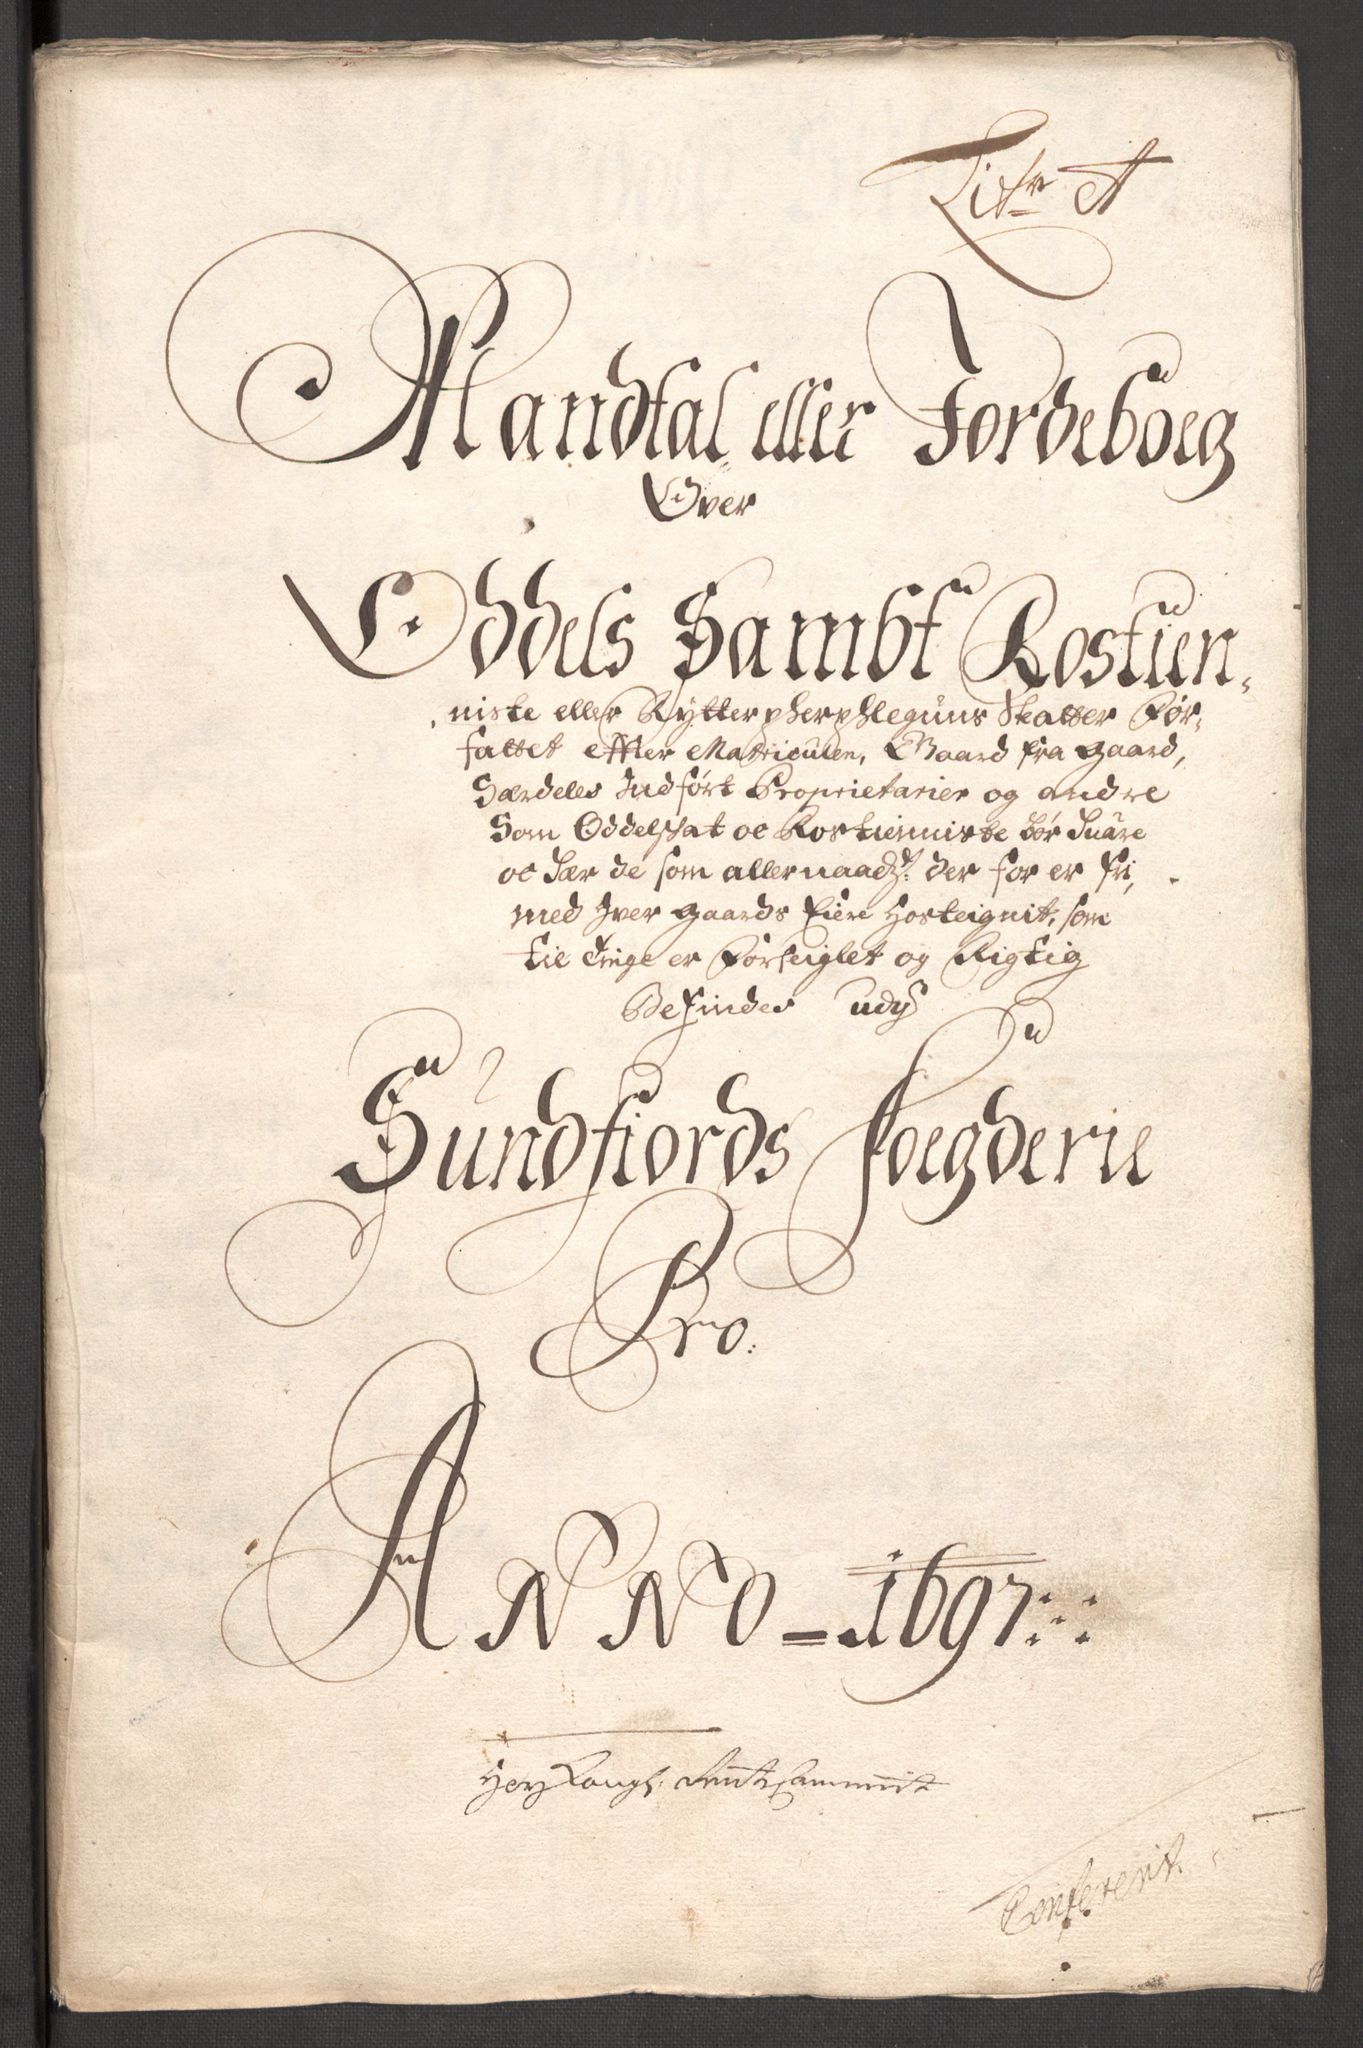 Litr A
Mandtal eller Jordeboeg
Over
Oddels Sambt Rostien-
niste eller Rytterpherphlegüns Skatter Før-
fattet effter Matriculen, Gaard fra gaard,
Særdeles Indført Proprietarier og andre
Som Oddelskat oc Rostienniste bør Suare
oc Jær de som allernaadst. der for er fri,
med hver gaards Eiere hosteignit, som
til Tinge er Forseiglet og Rigtig
Befindes udj
Sundfiords foegderie
Pro:
ANNO = 1697
Kongl: Rentekammerit
Confererit